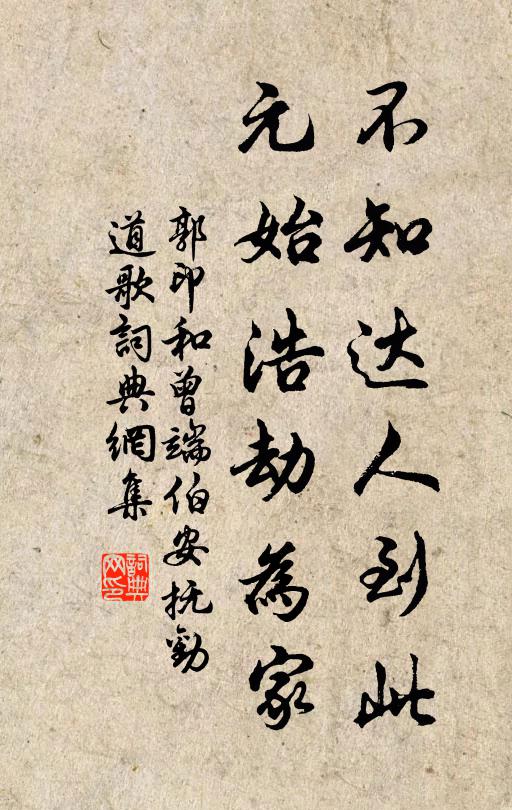 不知达人到此
元始浩劫為家
郭印和曾端伯安抚勸
道歌詞典網集
詞典网印